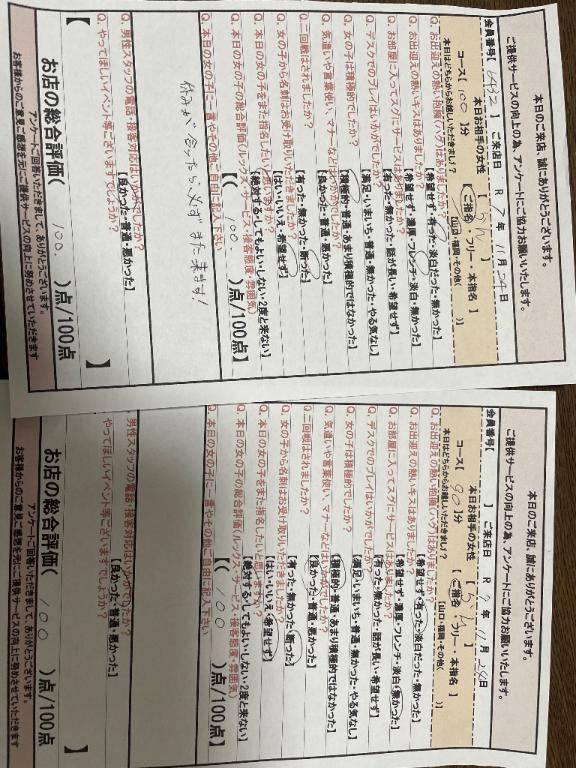 本日のご来店、誠にありがとうございます。
ご提供サービスの向上の為、アンケートにご協力お願いいたします。
会員番号【 】 ご来店日 R 7 年 11 月 24 日
コース【 100 】分 本日お相手の女性【 】
本日はどちらからお越しいただきましたか? 【 ご指名・フリー・本指名 】
【山口・福岡・その他( )】
Q. お出迎えの熱い抱擁(ハグ)はありましたか? 【希望せず・有った・淡白だった・無かった】
Q. お出迎えの熱いキスはありましたか? 【希望せず・濃厚・フレンチ・淡白・無かった】
Q. お部屋に入ってスグにサービスはありましたか? 【有った・無かった・話が長い・希望せず】
Q. デスクでのプレイはいかがでしたか? 【満足・いまいち・普通・無かった・やる気なし】
Q. 女の子は積極的でしたか? 【積極的・普通・あまり積極的ではなかった】
Q. 気遣いや言葉使い、マナーなどはいかがでしたか? 【良かった・普通・悪かった】
Q. 二回戦はされましたか? 【有った・無かった・断った】
Q. 女の子から名刺はお受け取りいただきましたか? 【はい・いいえ・希望せず】
Q. 本日の女の子をまた指名したいと思いますか? 【絶対する・してもよい・しない・2度と来ない】
Q. 本日の女の子の総合評価(ルックス・サービス・接客態度・雰囲気)
【( 100 )点/100点】
Q. 本日の女の子に一言やその他ご自由に記入下さい
休みが合ったら必ずまた来ます!
Q. 男性スタッフの電話・接客対応はいかがでしたか? 【良かった・普通・悪かった】
Q. やってほしいイベント等ございますでしょうか?
【 】
お店の総合評価( 100 )点/100点
アンケートに回答いただきまして、ありがとうございます。
お客様からのご意見ご感想を元にご提供サービスの向上に努めさせていただきます
本日のご来店、誠にありがとうございます。
ご提供サービスの向上の為、アンケートにご協力お願いいたします。
会員番号【 】 ご来店日 R 7 年 11 月 24 日
コース【 90 】分 本日お相手の女性【 】
本日はどちらからお越しいただきましたか? 【 ご指名・フリー・本指名 】
【山口・福岡・その他( )】
Q. お出迎えの熱い抱擁(ハグ)はありましたか? 【希望せず・有った・淡白だった・無かった】
Q. お出迎えの熱いキスはありましたか? 【希望せず・濃厚・フレンチ・淡白・無かった】
Q. お部屋に入ってスグにサービスはありましたか? 【有った・無かった・話が長い・希望せず】
Q. デスクでのプレイはいかがでしたか? 【満足・いまいち・普通・無かった・やる気なし】
Q. 女の子は積極的でしたか? 【積極的・普通・あまり積極的ではなかった】
Q. 気遣いや言葉使い、マナーなどはいかがでしたか? 【良かった・普通・悪かった】
Q. 二回戦はされましたか? 【有った・無かった・断った】
Q. 女の子から名刺はお受け取りいただきましたか? 【はい・いいえ・希望せず】
Q. 本日の女の子をまた指名したいと思いますか? 【絶対する・してもよい・しない・2度と来ない】
Q. 本日の女の子の総合評価(ルックス・サービス・接客態度・雰囲気)
【( 100 )点/100点】
Q. 本日の女の子に一言やその他ご自由に記入下さい
男性スタッフの電話・接客対応はいかがでしたか? 【良かった・普通・悪かった】
やってほしいイベント等ございますでしょうか?
】
お店の総合評価( 100 )点/100点
アンケートに回答いただきまして、ありがとうございます。
お客様からのご意見ご感想を元にご提供サービスの向上に努めさせていただきます